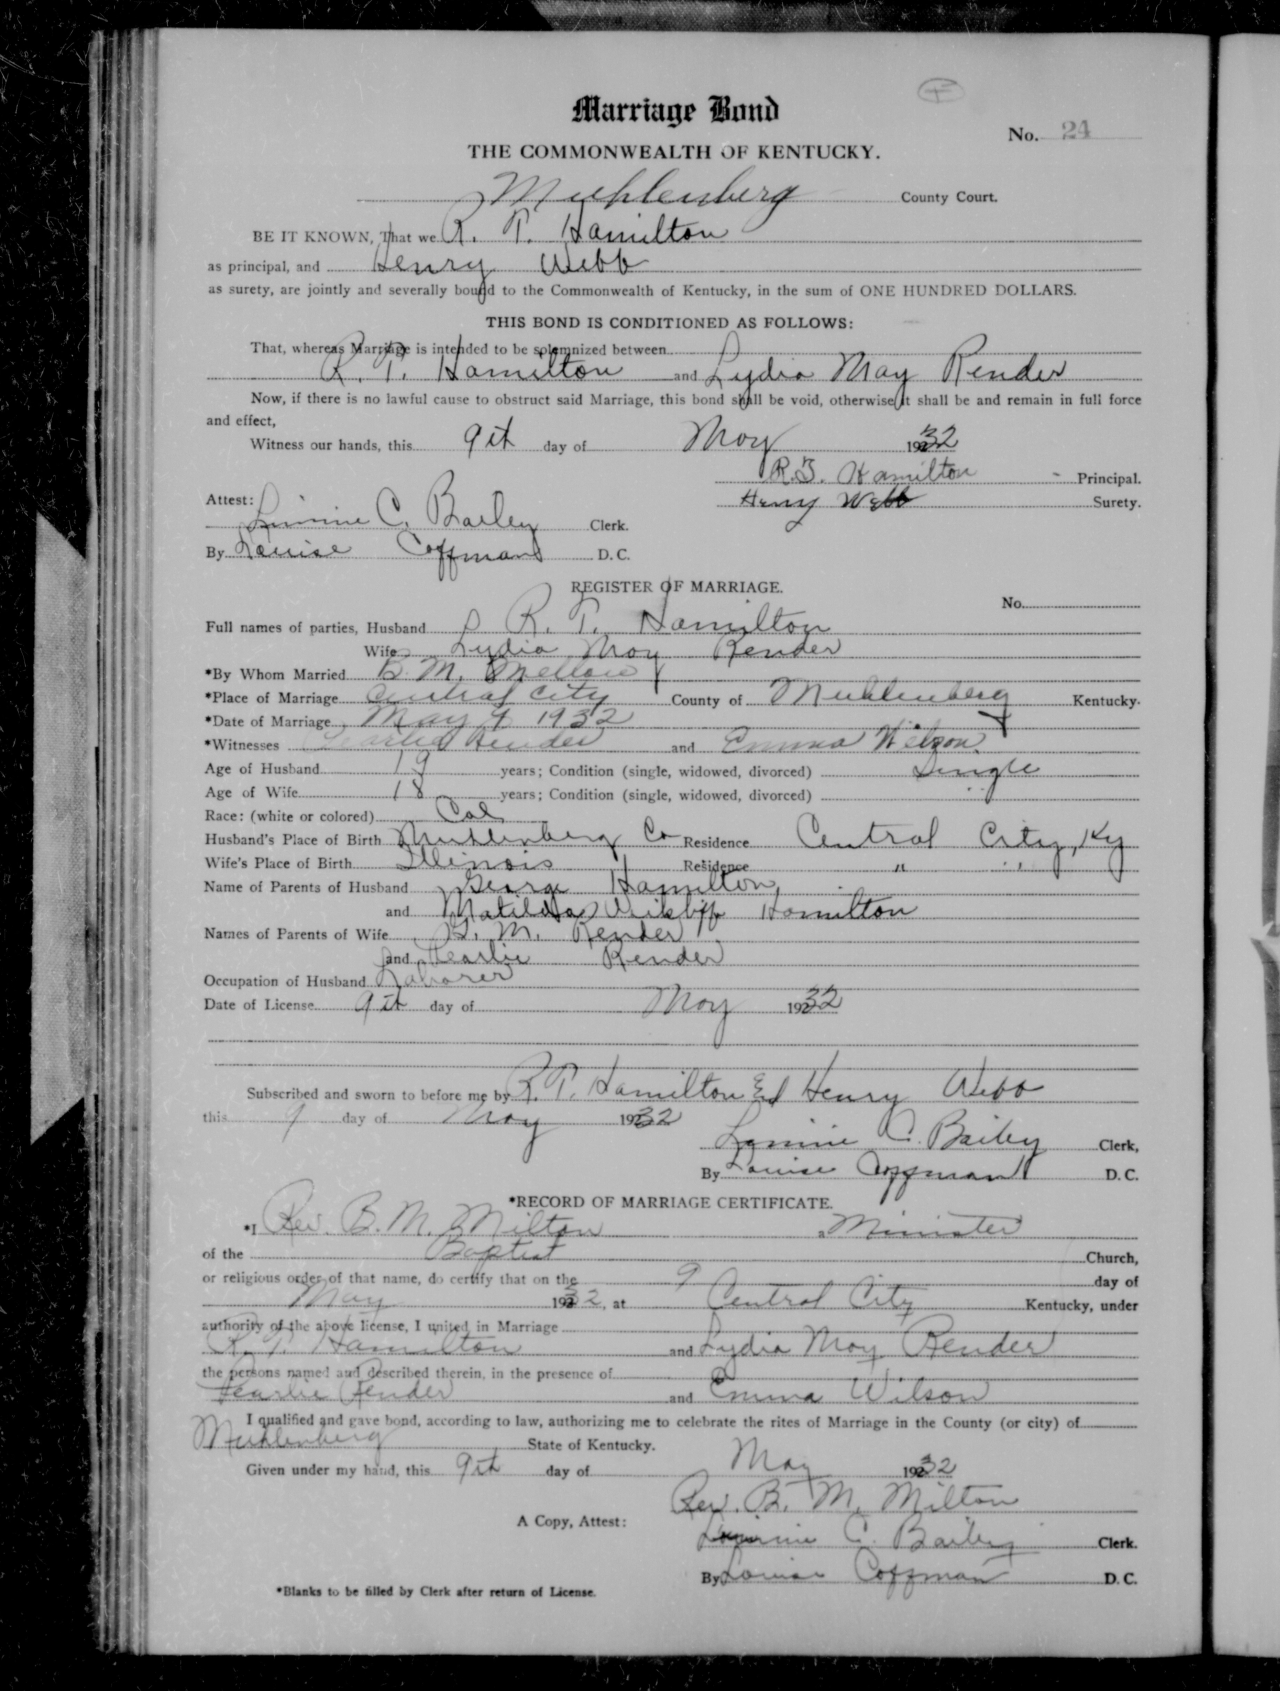 F
Marriage Bond
No. 24
THE COMMONWEALTH OF KENTUCKY.
Muhlenberg County Court.
BE IT KNOWN, That we R. T. Hamilton
as principal, and Henry Webb
as surety, are jointly and severally bound to the Commonwealth of Kentucky, in the sum of ONE HUNDRED DOLLARS.
THIS BOND IS CONDITIONED AS FOLLOWS:
That, whereas Marriage is intended to be solemnized between
R. T. Hamilton and Lydia May Render
Now, if there is no lawful cause to obstruct said Marriage, this bond shall be void, otherwise it shall be and remain in full force
and effect,
Witness our hands, this 9th day of May 1932
R.T. Hamilton Principal.
Attest: Henry Webb Surety.
C. Bailey Clerk.
By Louise Coffman D. C.
REGISTER OF MARRIAGE.
No.
Full names of parties, Husband R. T. Hamilton
Wife Lydia May Render
*By Whom Married B. M.
*Place of Marriage Central City County of Muhlenberg Kentucky.
*Date of Marriage May 9 1932
*Witnesses Pearlie Render and Emma Wilson
Age of Husband 19 years; Condition (single, widowed, divorced) Single
Age of Wife 18 years; Condition (single, widowed, divorced) " "
Race: (white or colored) Col
Husband's Place of Birth Muhlenberg Co Residence Central City, Ky
Wife's Place of Birth Illinois Residence " "
Name of Parents of Husband George Hamilton
and Matilda Hamilton
Names of Parents of Wife G. M. Render
and Pearlie Render
Occupation of Husband Laborer
Date of License 9th day of May 1932
Subscribed and sworn to before me by R. T. Hamilton and Henry Webb
this 9 day of May 1932
C. Bailey Clerk,
By Louise Coffman D. C.
*RECORD OF MARRIAGE CERTIFICATE.
*I Rev. B. M. Milton a Minister
of the Baptist Church,
or religious order of that name, do certify that on the 9 day of
May 1932, at Central City Kentucky, under
authority of the above license, I united in Marriage
R. T. Hamilton and Lydia May Render
the persons named and described therein, in the presence of
Pearlie Render and Emma Wilson
I qualified and gave bond, according to law, authorizing me to celebrate the rites of Marriage in the County (or city) of
Muhlenberg State of Kentucky.
Given under my hand, this 9th day of May 1932
Rev. B. M. Milton
A Copy, Attest:
C. Bailey Clerk.
By Louise Coffman D. C.
*Blanks to be filled by Clerk after return of License.